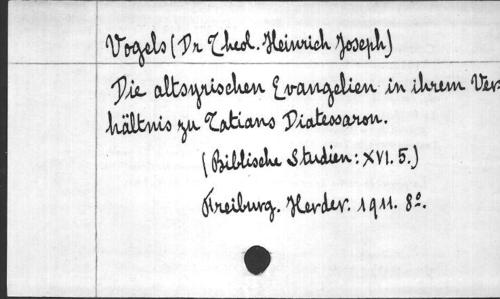 Vogels (Dr Theol. Heinrich Joseph)
Die altsyrischen Evangelien in ihrem Ver=
hältnis zu Tatians Diatessaron.
(Biblische Studien: XVI. 5.)
Freiburg. Herder. 1911. 8º.